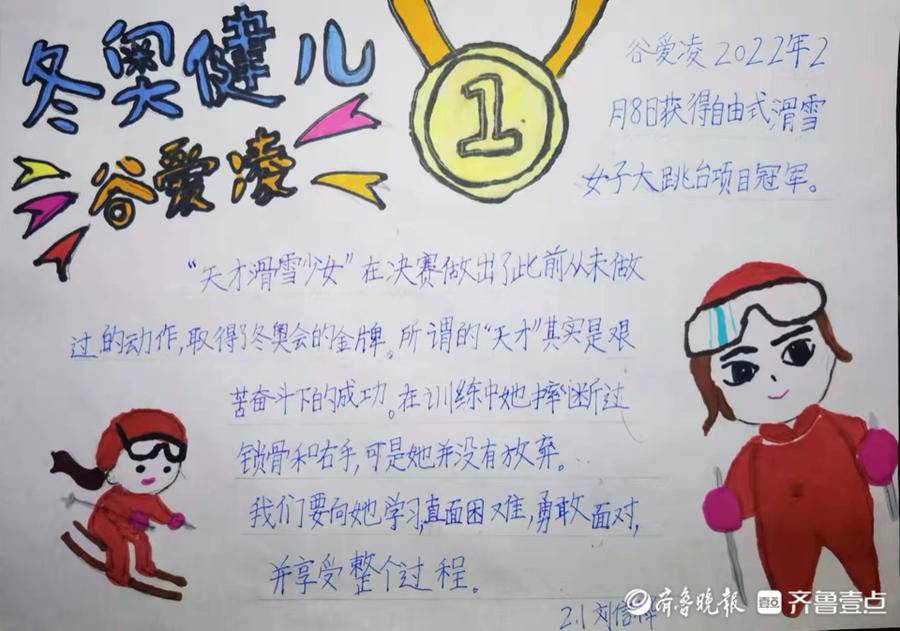 冬奥健儿
谷爱凌
1
谷爱凌2022年2
月8日获得自由式滑雪
女子大跳台项目冠军。
“天才滑雪少女”在决赛做出了此前从未做
过的动作,取得了冬奥会的金牌。所谓的“天才”其实是艰
苦奋斗下的成功。在训练中她摔断过
锁骨和右手,可是她并没有放弃。
我们要向她学习,直面困难,勇敢面对,
并享受整个过程。
2.1 刘信
齐鲁晚报 齐鲁壹点